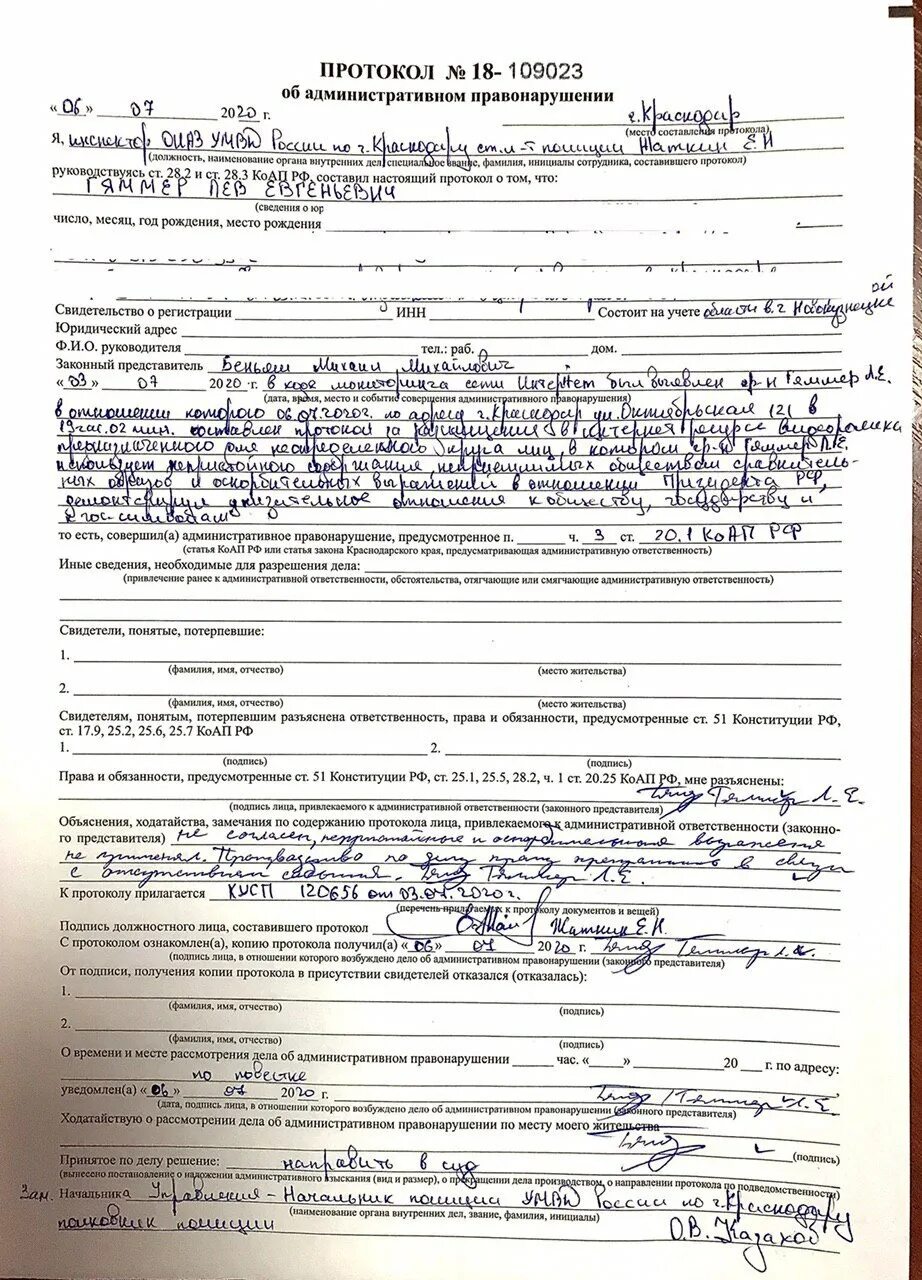 ПРОТОКОЛ № 18-109023
об административном правонарушении
«06» 07 2020 г. г.Краснодар
(место составления протокола)
Я, инспектор ОИАЗ УМВД России по г.Краснодару ст.л-т полиции Жаткин Е.Н
(должность, наименование органа внутренних дел специальное звание, фамилия, инициалы сотрудника, составившего протокол)
руководствуясь ст. 28.2 и ст. 28.3 КоАП РФ, составил настоящий протокол о том, что:
ГЯММЕР ЛЕВ ЕВГЕНЬЕВИЧ
(сведения о юр
число, месяц, год рождения, место рождения
Свидетельство о регистрации ИНН Состоит на учете области в г Новокузнецке
ой
Юридический адрес
Ф.И.О. руководителя тел.: раб. дом.
Законный представитель Беньяш Михаил Михайлович
«03» 07 2020 г. в ходе мониторинга сети Интернет был выявлен гр-н Гяммер Л.Е.
(дата, время, место и событие совершения административного правонарушения)
в отношении которого 06.07.2020г. по адресу г.Краснодар ул.Октябрьская 121 в
19 час. 02 мин. составлен протокол за размещения в интернет ресурсе видеоролика
предназначенного для неопределенного круга лиц, в котором гр-н Гяммер Л.Е.
использует непристойного содержания, неприемлимых обществом сравнитель-
ных образов и оскорбительных выражений в отношении Президента РФ,
демонстрируя унизительное отношения к обществу, государству и
гос. символам
то есть, совершил(а) административное правонарушение, предусмотренное п. ч. 3 ст. 20.1 КоАП РФ
(статья КоАП РФ или статья закона Краснодарского края, предусматривающая административную ответственность)
Иные сведения, необходимые для разрешения дела:
(привлечение ранее к административной ответственности, обстоятельства, отягчающие или смягчающие административную ответственность)
Свидетели, понятые, потерпевшие:
1.
(фамилия, имя, отчество) (место жительства)
2.
(фамилия, имя, отчество) (место жительства)
Свидетелям, понятым, потерпевшим разъяснена ответственность, права и обязанности, предусмотренные ст. 51 Конституции РФ,
ст. 17.9, 25.2, 25.6, 25.7 КоАП РФ
1. 2.
(подпись) (подпись)
Права и обязанности, предусмотренные ст. 51 Конституции РФ, ст. 25.1, 25.5, 28.2, ч. 1 ст. 20.25 КоАП РФ, мне разъяснены:
Гяммер Л.Е.
(подпись лица, привлекаемого к административной ответственности (законного представителя)
Объяснения, ходатайства, замечания по содержанию протокола лица, привлекаемого к административной ответственности (законно-
го представителя) не согласен, и оскорбительная выражения
не применял. Производство по делу прошу прекратить в связи
с отсутствием события. Гяммер Л.Е.
К протоколу прилагается КУСП 120656 от 03.07.2020г.
(перечень прилагаемых к протоколу документов и вещей)
Подпись должностного лица, составившего протокол Жаткин Е.Н.
С протоколом ознакомлен(а), копию протокола получил(а) «06» 07 2020 г. Гяммер Л.Е.
(подпись лица, в отношении которого возбуждено дело об административном правонарушении (законного представителя)
От подписи, получения копии протокола в присутствии свидетелей отказался (отказалась):
1.
(фамилия, имя, отчество) (подпись)
2.
(фамилия, имя, отчество) (подпись)
О времени и месте рассмотрения дела об административном правонарушении час. « » 20 г. по адресу:
по повестке
уведомлен(а) «06» 07 2020 г. Гяммер Л.Е.
(дата, подпись лица, в отношении которого возбуждено дело об административном правонарушении (законного представителя)
Ходатайствую о рассмотрении дела об административном правонарушении по месту моего жительства
(подпись)
Принятое по делу решение: направить в суд
(вынесено постановление о наложении административного взыскания (вид и размер), о прекращении дела производством, о направлении протокола по подведомственности)
Зам. Начальника Управления - Начальник полиции УМВД России по г.Краснодару
(наименование органа внутренних дел, звание, фамилия, инициалы)
полковник полиции О.В. Казахов